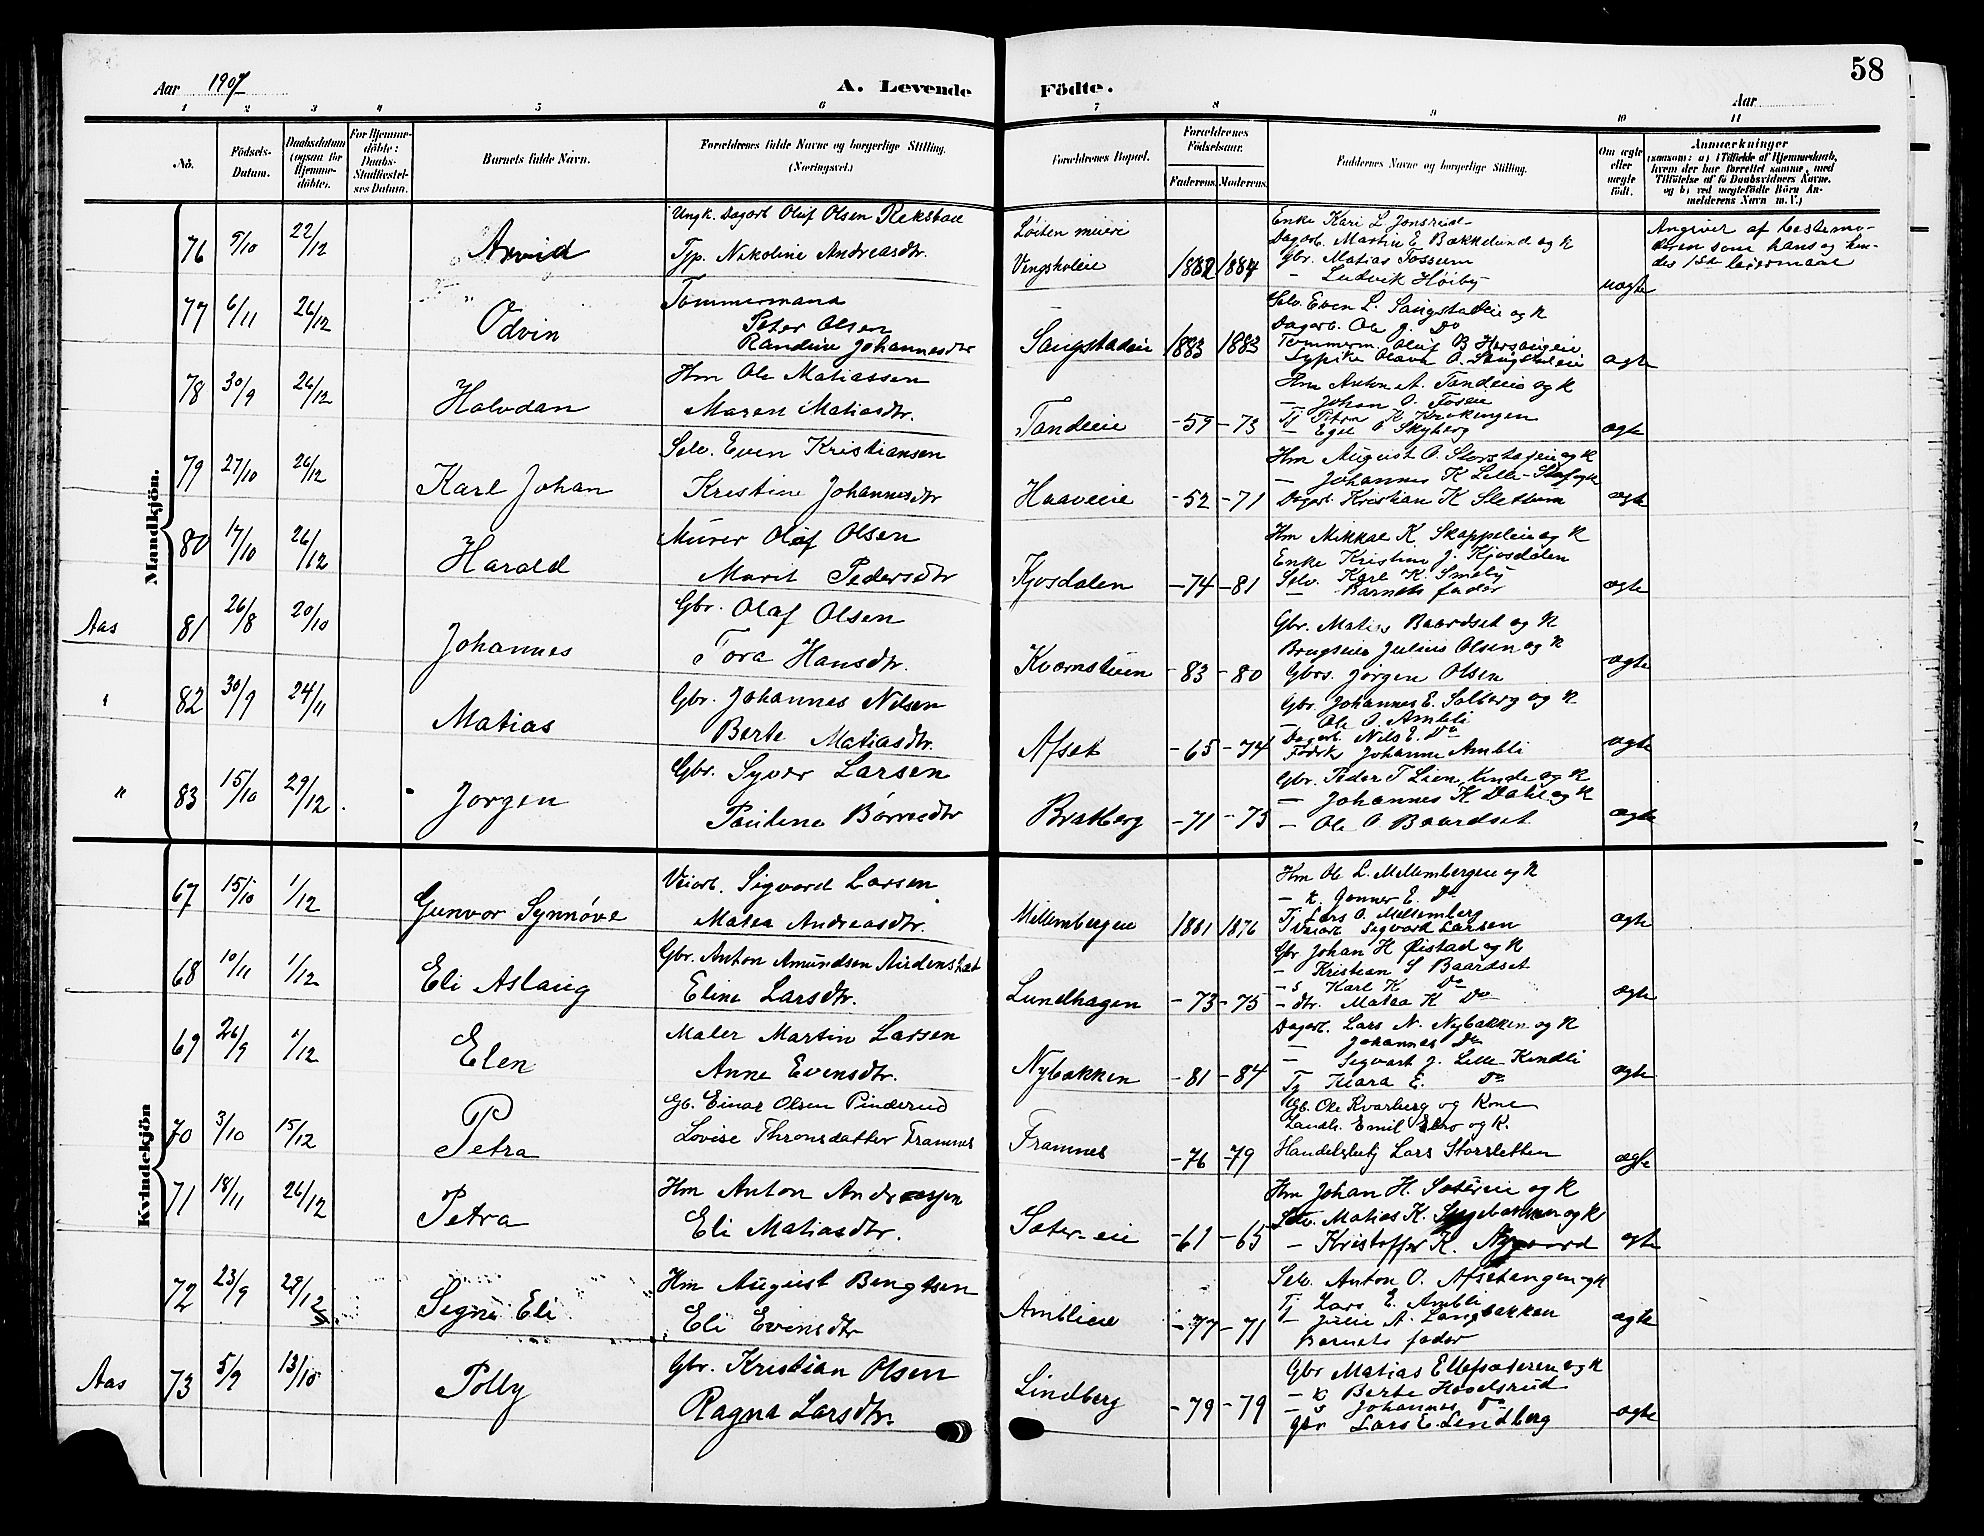 58
Aar 1907
A. Levende Födte.
Aar
1 2 3 4 5 6 7 8 9 10 11
No.
Födsels-Datum.
Daabsdatum (ogsaa for Hjemmedöbte).
For Hjemmedöbte: Daabs-Stadfæstelses Datum.
Barnets fulde Navn.
Forældrenes fulde Navne og borgerlige Stilling. (Næringsvei.)
Forældrenes Bopæl.
Forældrenes Födselsaar.
Faderens. Moderens.
Faddernes Navne og borgerlige Stilling.
Om ægte eller uægte födt.
Anmærkninger
(saasom: a) i Tilfælde af Hjemmedaab, hvem der har forrettet samme, med Tilföielse af to Daabsvidners Navne, og b) ved uægtefödte Börn Anmelderens Navn m. V.)
Mandkjön.
76 9/10 22/12 Arvid
Ungk. Dagarb. Oluf Olsen Rekstad
Tjp. Nikoline Andreasdtr.
Løiten meieri
Vingskoleie 1882 1884
Enke Kari L Jonsrud
Dagarb. Martin E Bækkelund og K
Gbr. Matias Fossum
— Ludvik Høiby
uægte
Angiver af bestemo-
deren som hans og hen-
des 1st leiermaal
77 6/11 26/12 Odvin
Tømmermand
Peter Olsen
Randine Johannesdtr
Saugstadeie 1883 1883
Selv. Even L. Saugstadeie og K
Dagarb. Ole J. Do
ægte
78 30/9 26/12 Halvdan
Hm Ole Matiassen
Maren Matiasdtr.
Tandeie -59 -73
Hm Anton A. Tandeie og K
— Johan O. Foseie
— Egil O Skyberg
ægte
79 27/10 26/12 Karl Johan
Selv. Even Kristiansen
Kristine Johannesdtr
Haaveie -52 -71
Hm August O. Storstafeie og K
— Johannes K Lille-Staf og K
Dagarb. Kristian K Slettum
ægte
80 17/10 26/12 Harald
Murer Olaf Olsen
Marit Pedersdtr
Kjosdalen -74 -81
Hm Mikkal K Skappeleie og K
Enke Kristine J. Kjosdalen
Selv. Karl K. Smeby
Barnets fader
ægte
Aas 81 26/8 20/10 Johannes
Gbr. Olaf Olsen
Tora Hansdtr.
Kvernstuen -83 -80
Gbr. Matias Baardset og K
Brugseier Julius Olsen og K
Gbrs. Jørgen Olsen
ægte
" 82 30/9 24/11 Matias
Gbr. Johannes Nilsen
Berte Matiasdtr.
Afset -65 -74
Gbr. Johannes E. Solberg og K
— Ole O. Ambli
Dagarb. Nils E. Do
Føderk. Johanne Ambli
ægte
" 83 15/10 29/12 Jørgen
Gbr. Syver Larsen
Pauline Børresdtr
Bratberg -71 -75
Gbr. Peder T Lien Kinde og K
— Johannes K Dahl og K
— Ole O. Baardset
ægte
Kvindekjön
67 15/10 1/12 Gunvor Synnøve
Veiarb. Sigvard Larsen
Matea Andreasdtr.
Mellembergeie 1881 1876
Hm Ole L. Mellembergeie og K
— K. Gonner E. Do
Tj Lars O. Mellemberg
Veiarb Sigvard Larsen
ægte
68 10/11 1/12 Eli Aslaug
Gbr. Anton Amundsen
Eline Larsdtr.
Lundhagen -73 -75
Gbr Johan H Øistad og K
— Kristian S Baardset
— s Karl K Do
— dtr. Matea K Do
ægte
69 26/9 1/12 Elen
Maler Martin Larsen
Anne Evensdtr.
Nybakken -81 -84
Dagarb. Lars N. Nybakken og K
— Johannes Do
— Sigvart J. Lille-Kindli
Tj Klara E. Do
ægte
70 3/10 15/12 Petra
Gb. Einar Olsen Pinderud
Lovise Thronsdatter Framnes
Framnes -76 -79
Gb. Ole Kvarberg og Kone
Landh. Emil og K.
Handelsbetj Lars Storsletten
ægte
71 18/11 26/12 Petra
Hm Anton Andreassen
Eli Matiasdtr.
Sætereie -61 -65
Hm Johan H. Sætereie og K
Selv. Matias K. og K
— Kristoffer K. Nygaard
ægte
72 23/9 29/12 Signe Eli
Hm August Bengtsen
Eli Evensdtr
Amblieie -77 -71
Selv. Anton O. Afsetengen og K
Tj Lars E. Ambli
— Julie A. Langbakken
Barnets fader
ægte
Aas 73 5/9 13/10 Polly
Gbr. Kristian Olsen
Ragna Larsdtr.
Lindberg -79 -79
Gbr Matias Ellefsæteren og K
— K Berte Hoselsrud
— s Johannes Do
Gbr Lars E. Lindberg
ægte